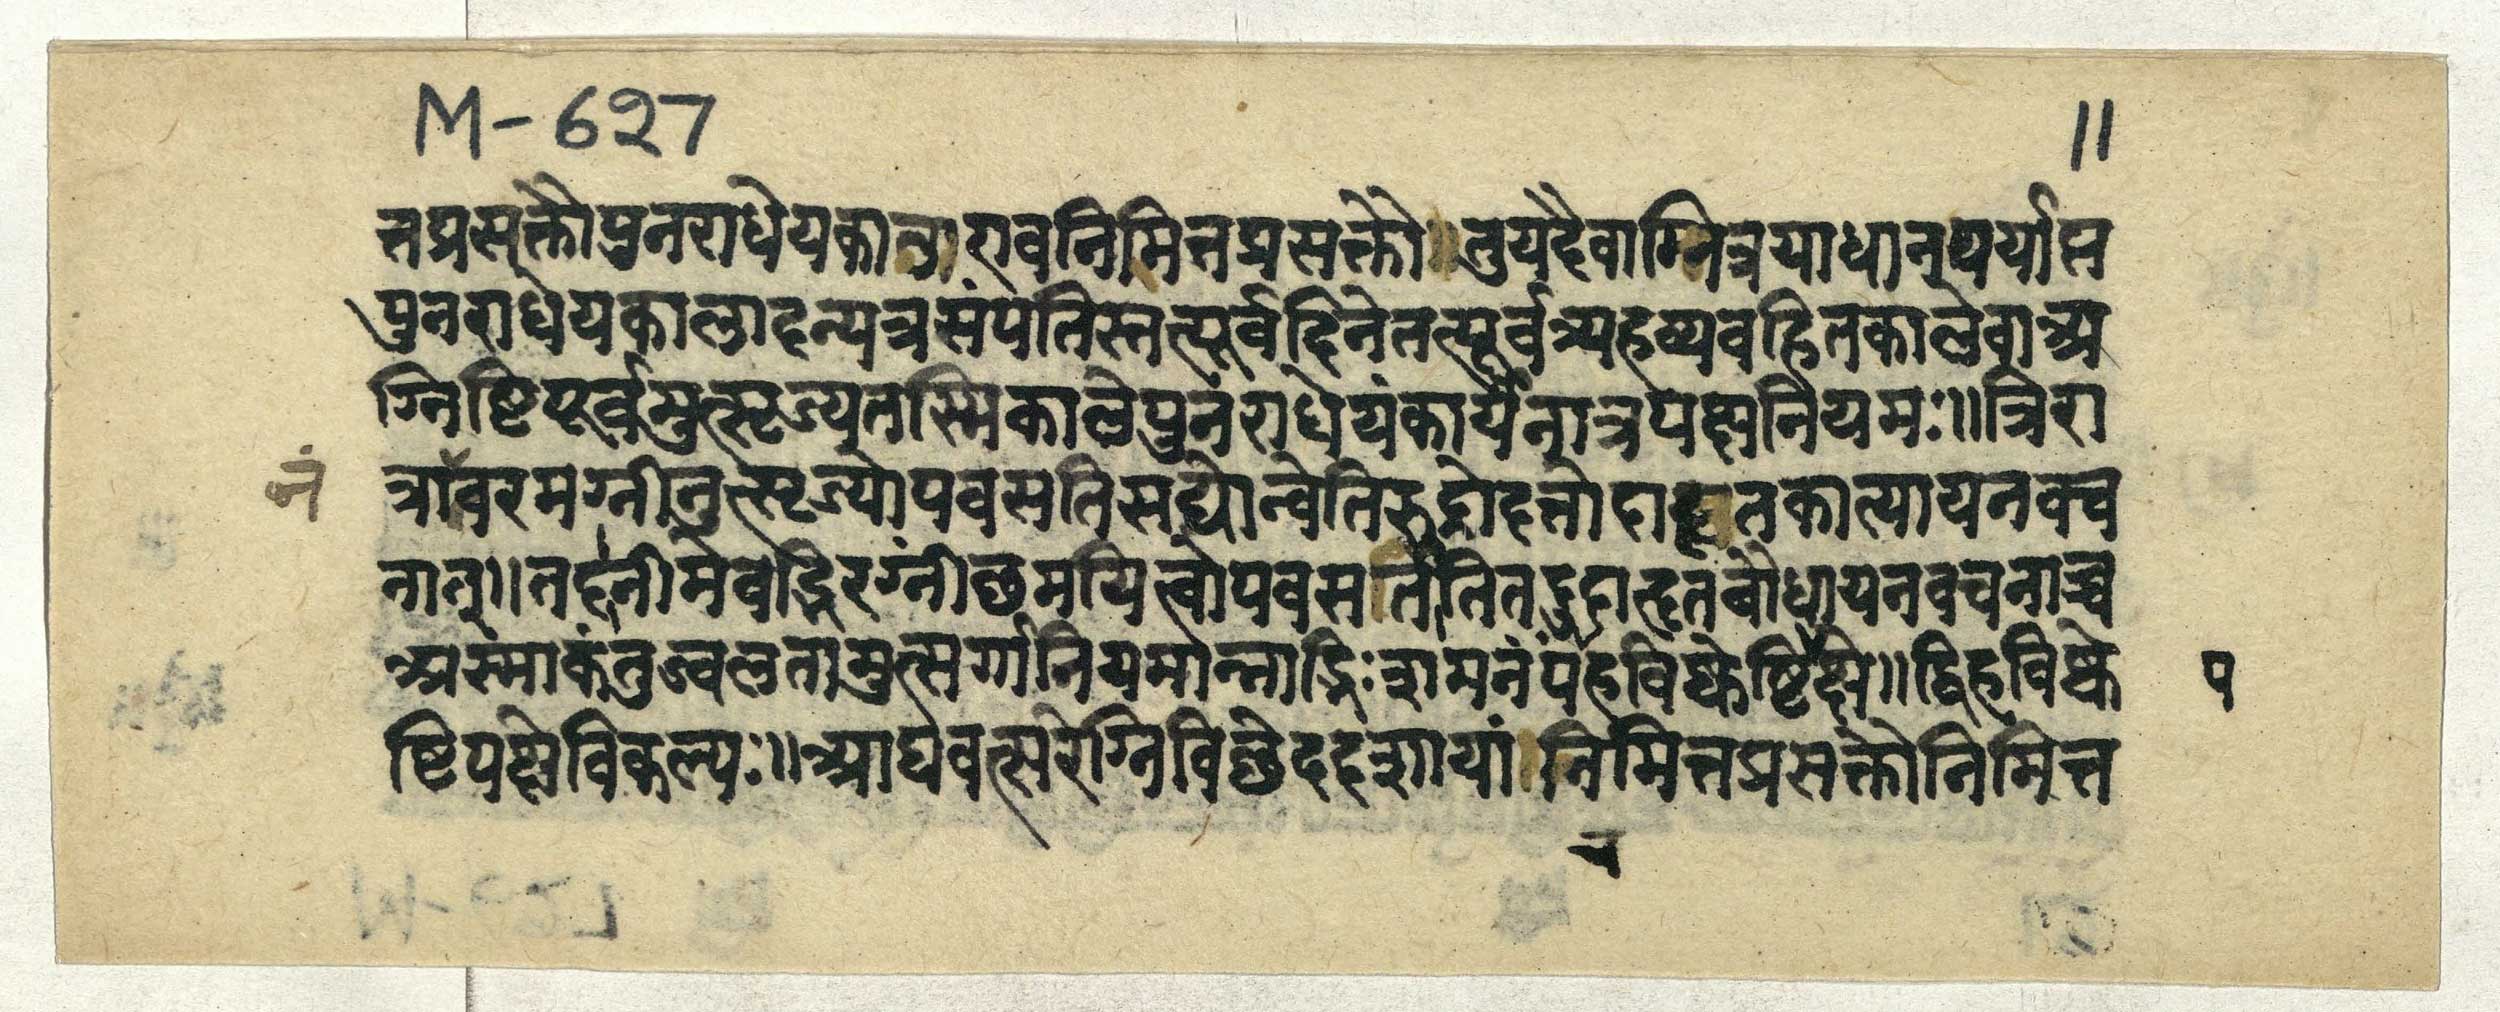 M-627
11
त्तप्रसक्तौपुनराधेयकालाएवनिमित्तप्रसक्तौ।तुयदैवाग्नित्रयाधानपर्याप्त
पुनराधेयकालादन्यत्रसंपतिस्तत्पूर्वदिनेतत्पूर्वत्र्यहव्यवहितकालेवाअ
ग्निष्टिपूर्वमुत्सृज्यतस्मिकालेपुनराधेयंकार्यंनात्रपक्षनियमः॥त्रिरा
नं
त्रावरमग्नीनुत्सृज्योपवसतिसद्योन्वेतिरुद्रोदत्तोदाहृतकात्यायनवच
नात्॥तदानीमेवद्भिरग्नीछमयित्वोपवसतीतितदुदाहृतबौधायनवचनाच्च
अस्माकंतुज्वलतामुत्सर्गानियमान्नाद्भिःशमनंपंहविष्केष्टिपक्षे॥द्विहविष्के
प
ष्टिपक्षेविकल्पः॥आद्यवत्सरेग्निविछेददशायां।निमित्तप्रसक्तोनिमित्त
च